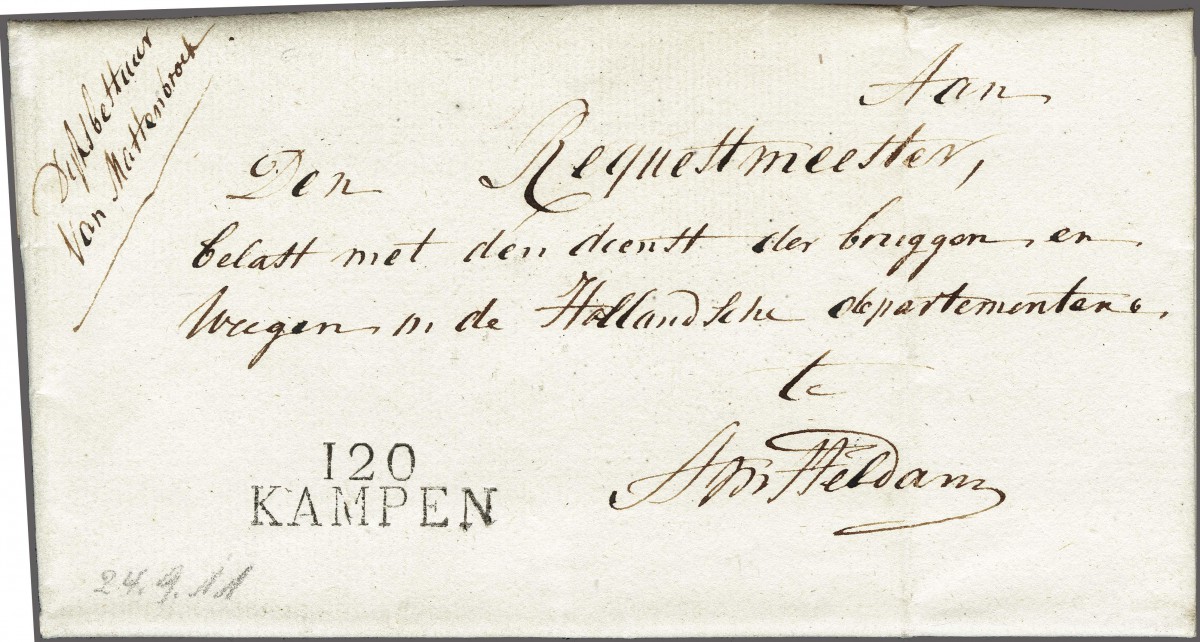 Dijksbestuur
van Mastenbroek
Aan
Den Requestmeester,
belast met den dienst der bruggen en
Weegen in de Hollandsche departementen.
te
Amsteldam
120
KAMPEN
24.9.11